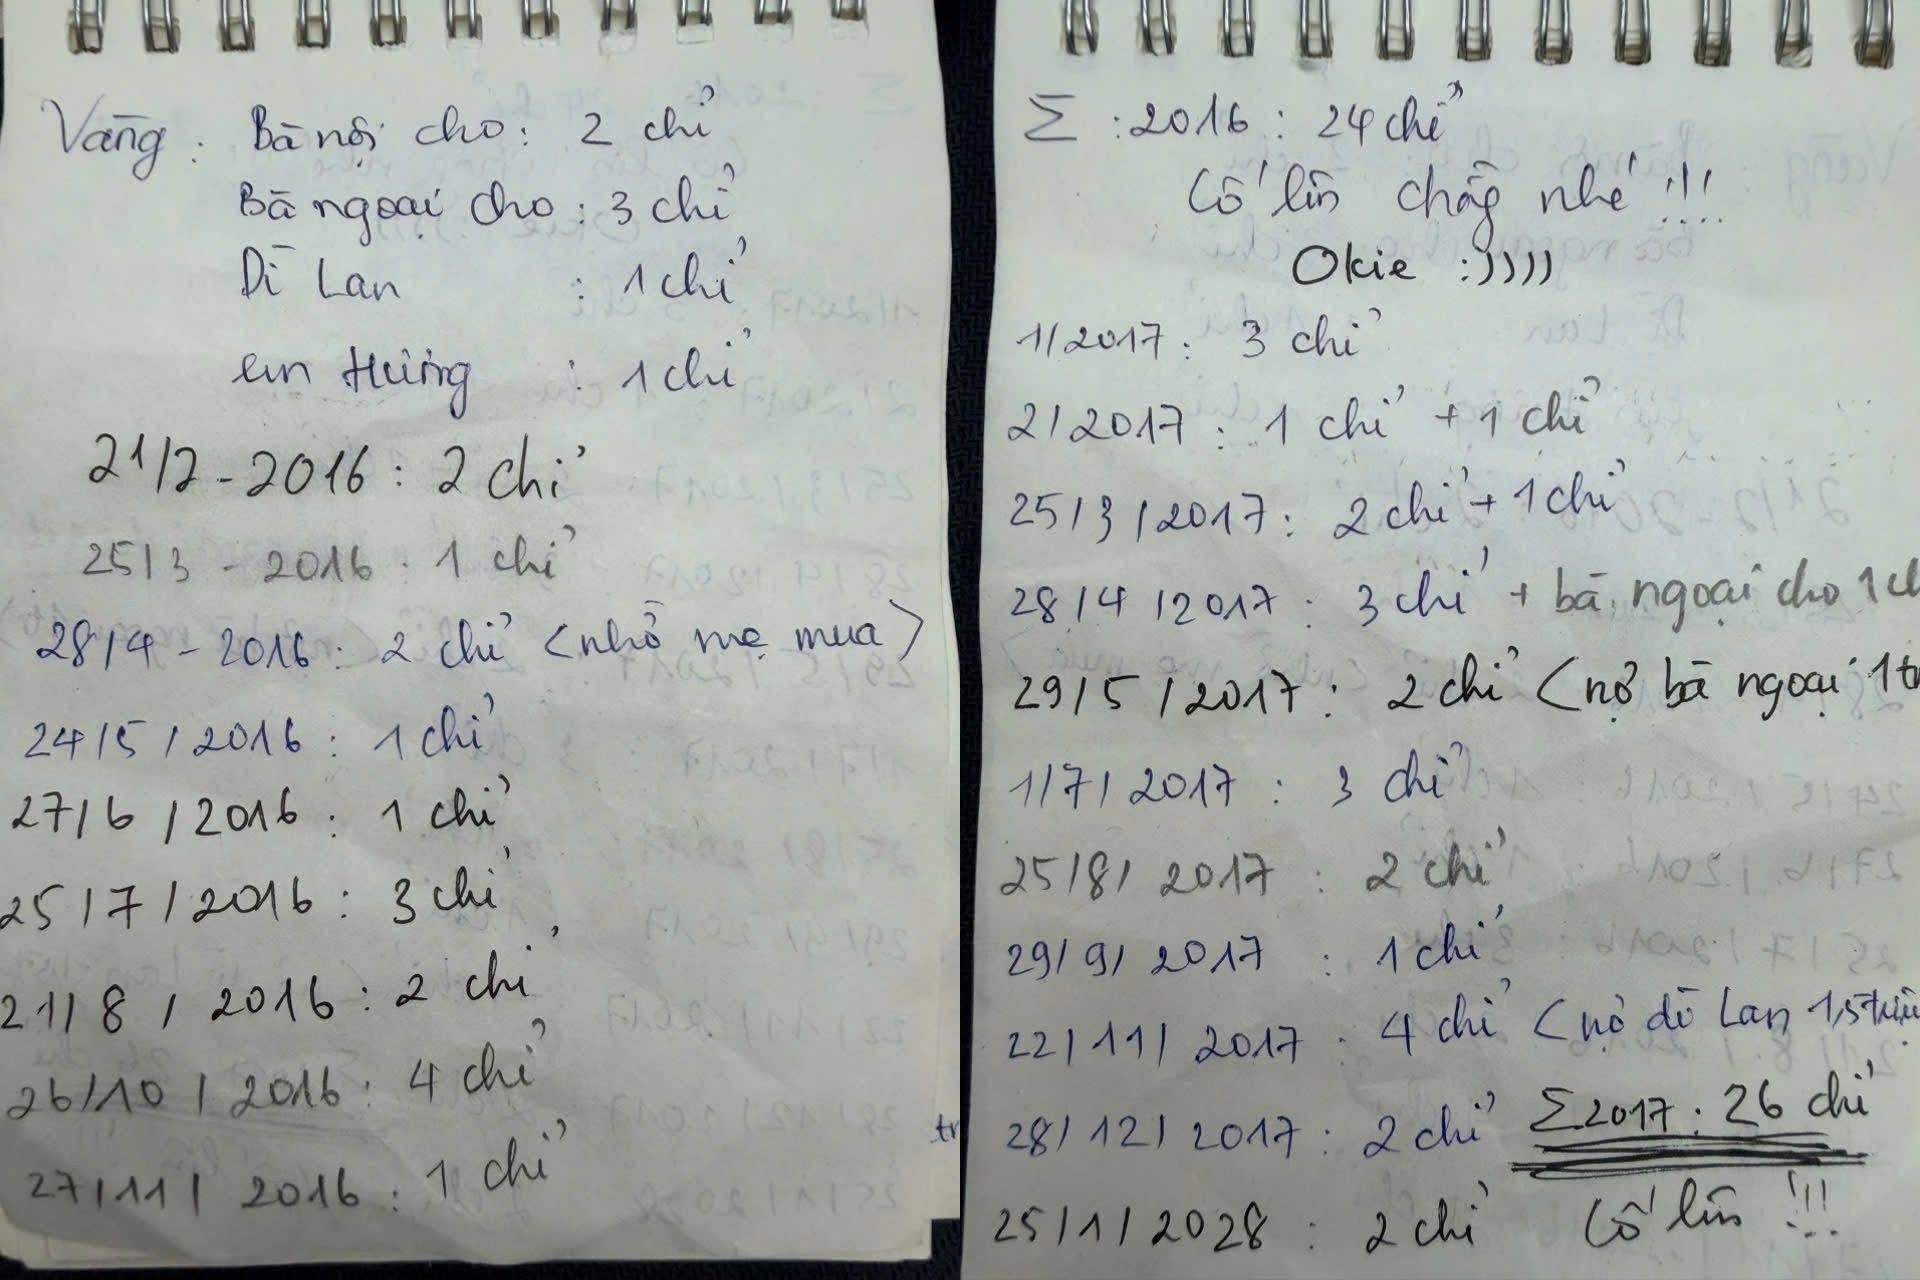 Vàng : Bà nội cho : 2 chỉ
Bà ngoại cho : 3 chỉ
Dì Lan : 1 chỉ
em Hường : 1 chỉ
21/2 - 2016 : 2 chỉ
25/3 - 2016 : 1 chỉ
28/4 - 2016 : 2 chỉ (nhờ mẹ mua)
24/5/2016 : 1 chỉ
27/6/2016 : 1 chỉ
25/7/2016 : 3 chỉ
21/8/2016 : 2 chỉ
26/10/2016 : 4 chỉ
27/11/2016 : 1 chỉ
Σ : 2016 : 24 chỉ
Cố lên chồng nhé !!!
Okie :))))
1/2017 : 3 chỉ
2/2017 : 1 chỉ + 1 chỉ
25/3/2017 : 2 chỉ + 1 chỉ
28/4/2017 : 3 chỉ + bà ngoại cho 1 ch
29/5/2017 : 2 chỉ (nợ bà ngoại 1 tr
1/7/2017 : 3 chỉ
25/8/2017 : 2 chỉ
29/9/2017 : 1 chỉ
22/11/2017 : 4 chỉ (nợ dì Lan 1,5 triệu
28/12/2017 : 2 chỉ Σ2017 : 26 chỉ
25/1/2028 : 2 chỉ Cố lên !!!